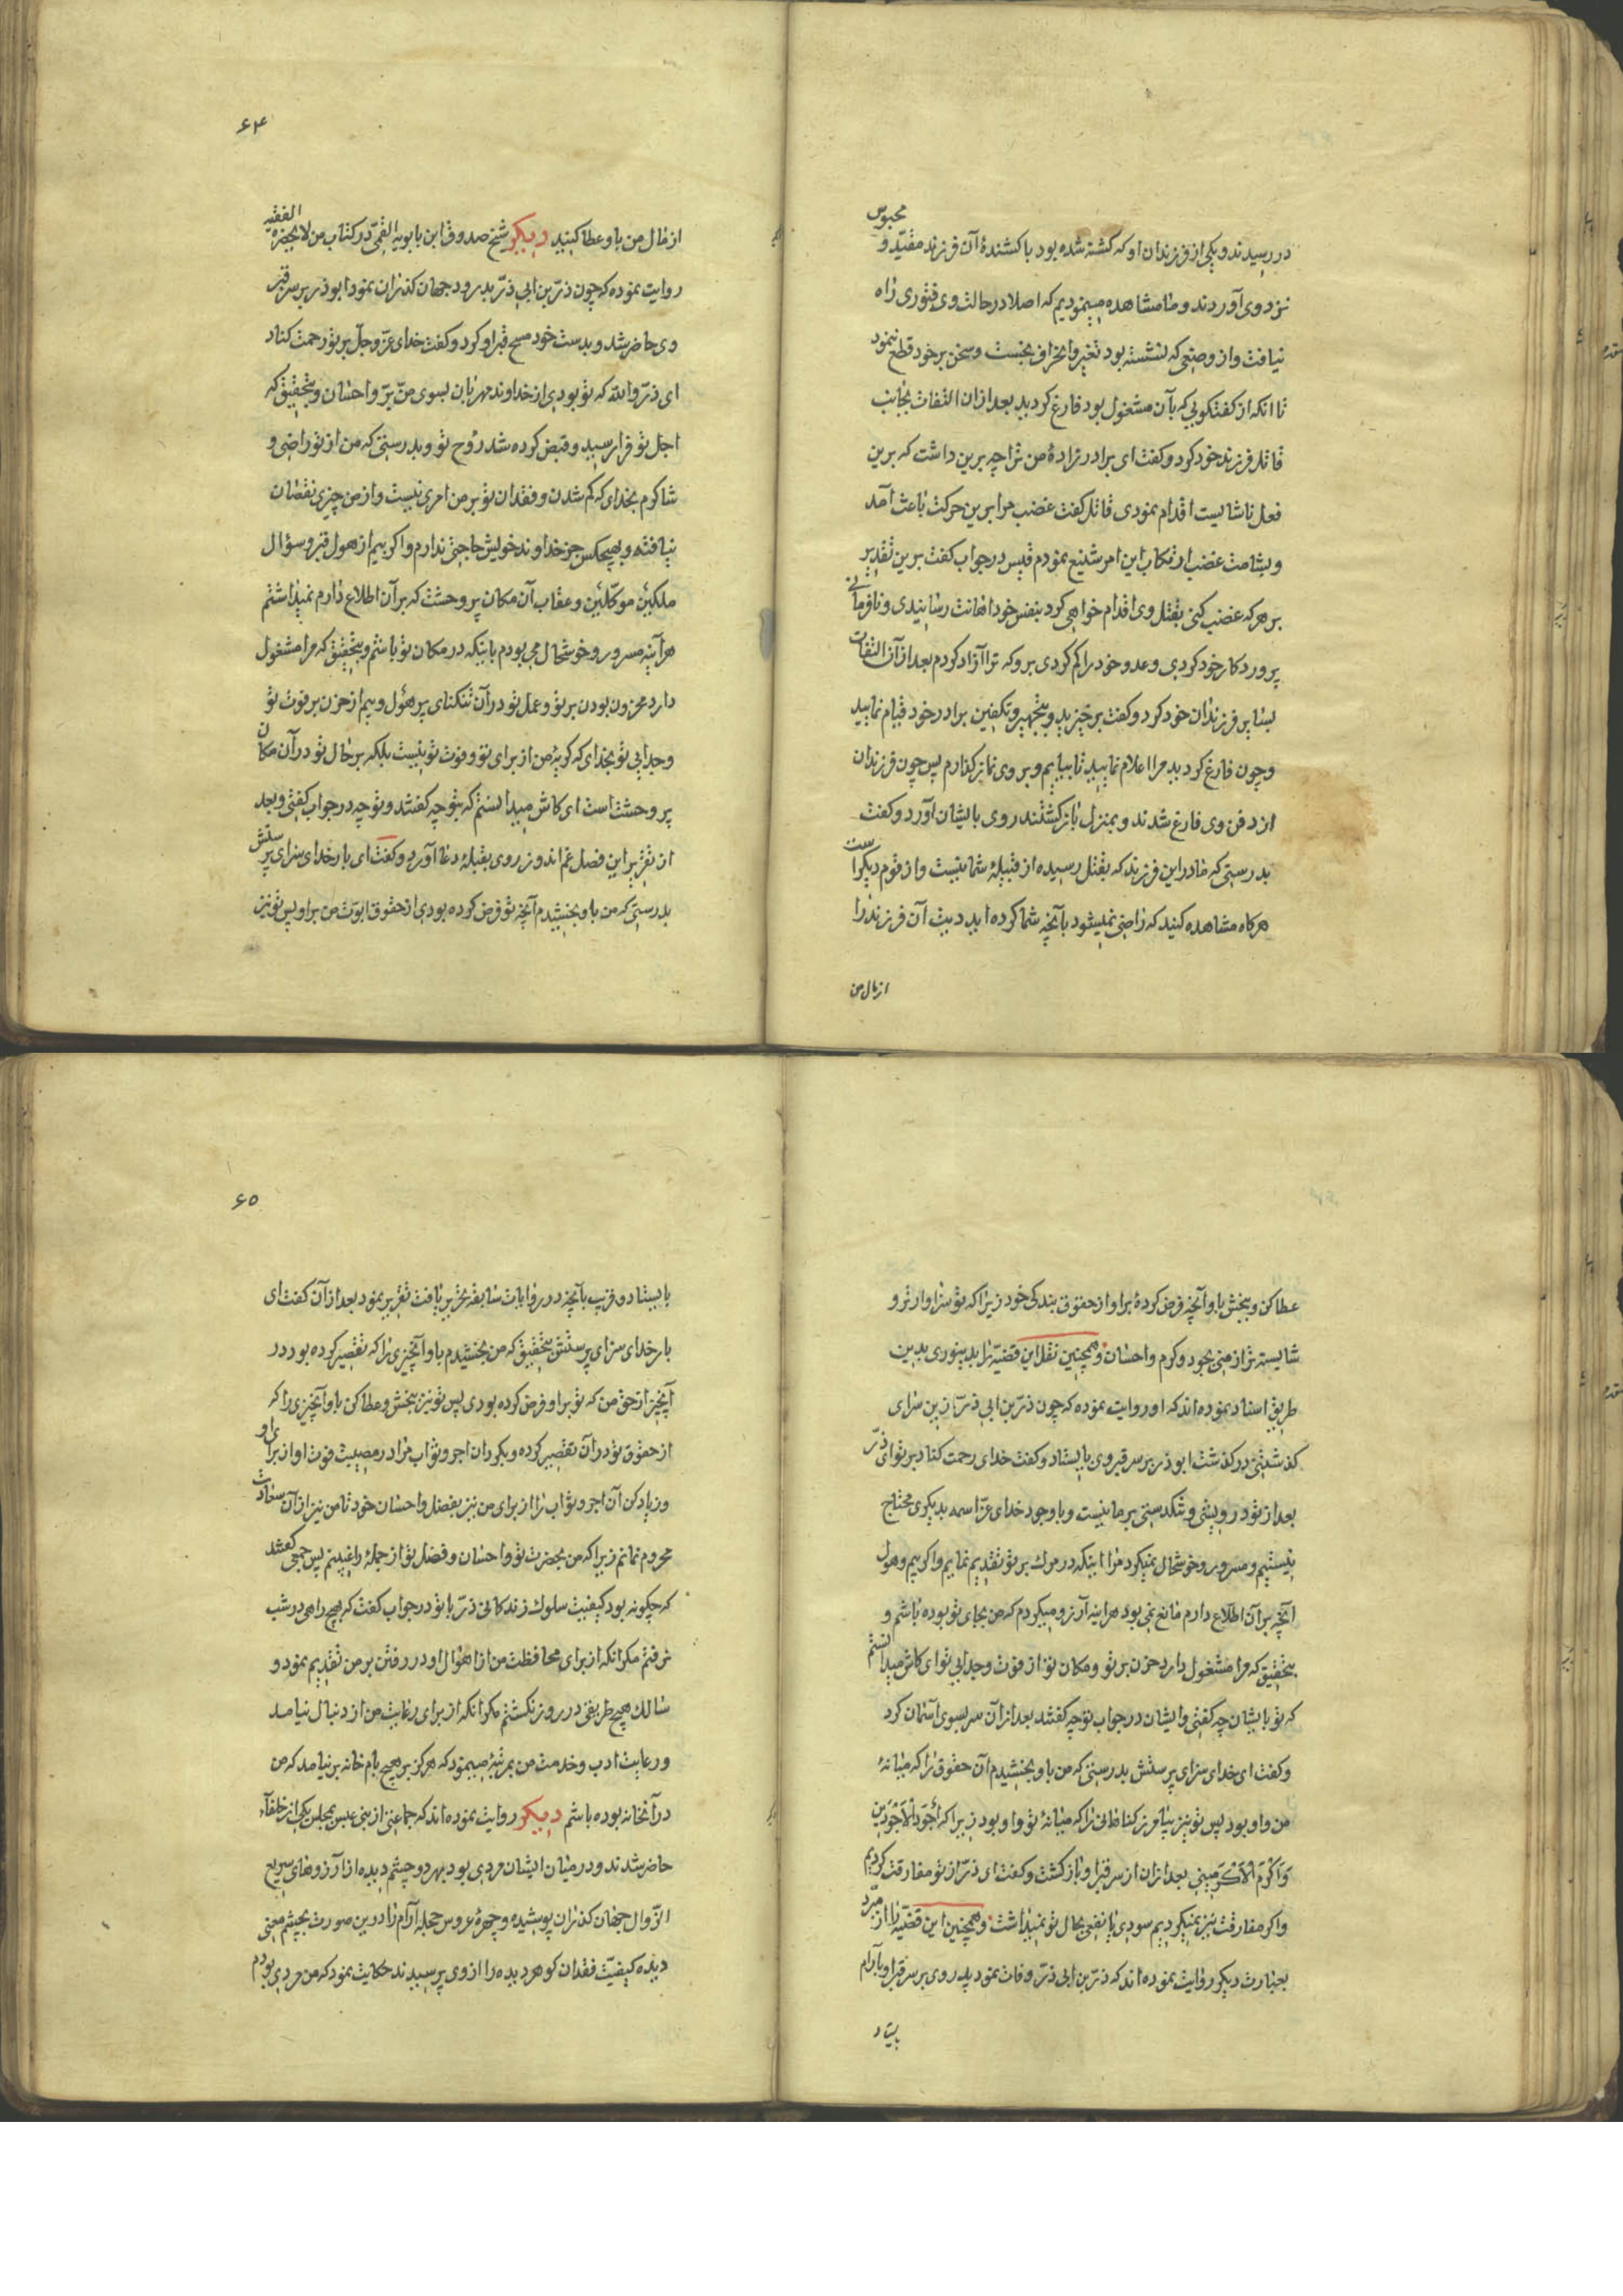 در رسیدند و یکی از فرزندان او که کشته شده بود با کشندهٔ آن فرزند مقیّد و محبوس
نزد وی آوردند و ما مشاهده مینمودیم که اصلا در حالت وی فتوری راه
نیافت و از وضعی که نشسته بود تغیر و انحراف نجست و سخن بر خود قطع ننمود
تا آنکه از کفتکویی که بآن مشغول بود فارغ کردید بعد از ان التفات بجانب
قاتل فرزند خود کرد و کفت ای برادر زادهٔ من ترا چه برین داشت که برین
فعل ناشایست اقدام نمودی قاتل کفت غضب مرا برین حرکت باعث آمد
و بشامت غضب ارتکاب این امر شنیع نمودم قیس در جواب کفت برین تقدیر
بر هر که غضب کنی بقتل وی اقدام خواهی کرد بنفس خود اهانت رسانیدی و نافرمانی
پروردکار خود کردی و عدد خود را کم کردی برو که ترا آزاد کردم بعد از آن التفات
بسایر فرزندان خود کرد و کفت برخیزید و بتجهیز و تکفین برادر خود قیام نمایید
و چون فارغ کردید مرا اعلام نمایید تا بیایم و بر وی نماز کذارم پس چون فرزندان
از دفن وی فارغ شدند و بمنزل باز کشتند روی بایشان آورد و کفت
بدرستی که مادر این فرزند که بقتل رسیده از قبیلهٔ شما نیست و از قوم دیکراست
هرکاه مشاهده کنید که راضی نمیشود بآنچه شما کرده اید دیت آن فرزند را
از مال من
۶۴
از مال من باو عطا کنید دیکر شیخ صدوق ابن بابویه القمیّ در کتاب من لا یحضره الفقیه
روایت نموده که چون ذرّ بن ابی ذرّ بدرود جهان کذران نمود ابوذر بر سر قبر
وی حاضر شد و بدست خود مسح قبر او کرد و کفت خدای عزّ و جلّ بر تو رحمت کناد
ای ذرّ والله که تو بودی از خداوند مهربان بسوی من برّ و احسان و بتحقیق که
اجل تو فرا رسید و قبض کرده شد روح تو و بدرستی که من از تو راضی و
شاکرم بخدای که کم شدن و فقدان تو بر من امری نیست و از من چیزی نقصان
نیافته و بهیچکس جز خداوند خویش حاجتی ندارم و اکر بیم از هول قبر و سؤال
ملکین موکّلین و عقاب آن مکان پر وحشت که بر آن اطلاع دارم نمیداشتم
هرآینه مسرور و خوشحال می بودم باینکه در مکان تو باشم و بتحقیق که مرا مشغول
دارد محزون بودن بر تو و عمل تو در آن تنکنای پر هول و بیم از حزن بر فوت تو
و جدایی تو بخدای که کریهٔ من از برای تو و فوت تو نیست بلکه بر حال تو در آن مکان
پر وحشت است ای کاش میدانستم که بتو چه کفتند و تو چه در جواب کفتی و بعد
از تقریر این فصل غم اندوز روی بقبلهٔ دعا آورد و کفت ای بار خدای سزای پرستش
بدرستی که من باو بخشیدم آنچه تو فرض کرده بودی از حقوق ابوّت من بر او پس تو نیز
عطا کن و ببخش باو آنچه فرض کردهٔ بر او از حقوق بندکی خود زیرا که تو سزاوارتر و
شایسته تر از منی بجود و کرم و احسان و همچنین نقل این قضیّه را بدینوری بدین
طریق اسناد نموده اند که او روایت نموده که چون ذرّ بن ابی ذرّ از ین سرای
کذشتنی در کذشت ابوذر بر سر قبر وی بایستاد و کفت خدای رحمت کناد بر تو ای ذرّ
بعد از تو درویشی و تنکدستی بر ما نیست و با وجود خدای عزّ اسمه بدیکری محتاج
نیستیم و مسرور و خوشحال نمیکرد مرا اینکه در مرك بر تو تقدیم نمایم و اکر بیم و هول
آنچه بر آن اطلاع دارم مانع نمی بود هراینه آرزو میکردم که من بجای تو بوده باشم و
بتحقیق که مرا مشغول دارد حزن بر تو و مکان تو از فوت و جدایی تو ای کاش میدانستم
که تو بایشان چه کفتی و ایشان در جواب تو چه کفتند بعد از آن سر بسوی آسمان کرد
و کفت ای خدای سزای پرستش بدرستی که من باو بخشیدم آن حقوق را که میانهٔ
من و او بود پس تو نیز بیامرز کناهانی را که میانهٔ تو و او بود زیرا که أجود الاجودین
و اکرم الاکرمینی بعد از ان از سر قبر او باز کشت و کفت ای ذرّ از تو مفارقت کردیم
و اکر مفارقت نیز نمیکردیم سودی یا نفعی بحال تو نمیداشت و همچنین این قضیّه را از مبرّد
بعبارت دیکر روایت نموده اند که ذرّ بن ابی ذرّ وفات نمود پدر وی بر سر قبر او بآرام
بایستاد
۶۵
بایستاد و قریب بآنچه در روایات سابقه تحریر یافت تقریر نمود بعد از آن کفت ای
بار خدای سزای پرستش بتحقیق که من بخشیدم باو آنچیزی را که تقصیر کرده بود در
آنچیز از حق من که تو بر او فرض کرده بودی پس تو نیز ببخش و عطا کن باو آنچیزی را که
از حقوق تو در آن تقصیر کرده و بکردان اجر و ثواب مرا در مصیبت فوت او از برای او
و زیاد کن آن اجر و ثواب را از برای من نیز بفضل و احسان خود تا من نیز از آن سعادت
محروم نمانم زیرا که من بحضرت تو و احسان و فضل تو از جملهٔ راغبینم پس جمعی کفتند
که چکونه بود کیفیت سلوك زندکانی ذرّ با تو در جواب کفت که هیچ راهی در شب
نرفتم مکر انکه از برای محافظت من از اهوال او در رفتن بر من تقدیم نمود و
سالك هیچ طریقی در روز نکشتم مکر انکه از برای رعایت من از دنبال نیامد
و رعایت ادب و خدمت من بمرتبهٔ مینمود که هرکز بر هیچ بام خانه بر نیامد که من
در آنخانه بوده باشم دیکر روایت نموده اند که جماعتی از بنی عبس بمجلس یکی از خلفآء
حاضر شدند و در میان ایشان مردی بود بهر دو چشم دیده از آرزوهای سریع
الزّوال جهان کذران پوشیده و چهرهٔ عروس حجلهٔ آرام را درین صورت بچشم معنی
دیده کیفیّت فقدان کوهر دیده را از وی پرسیدند حکایت نمود که من مردی بودم